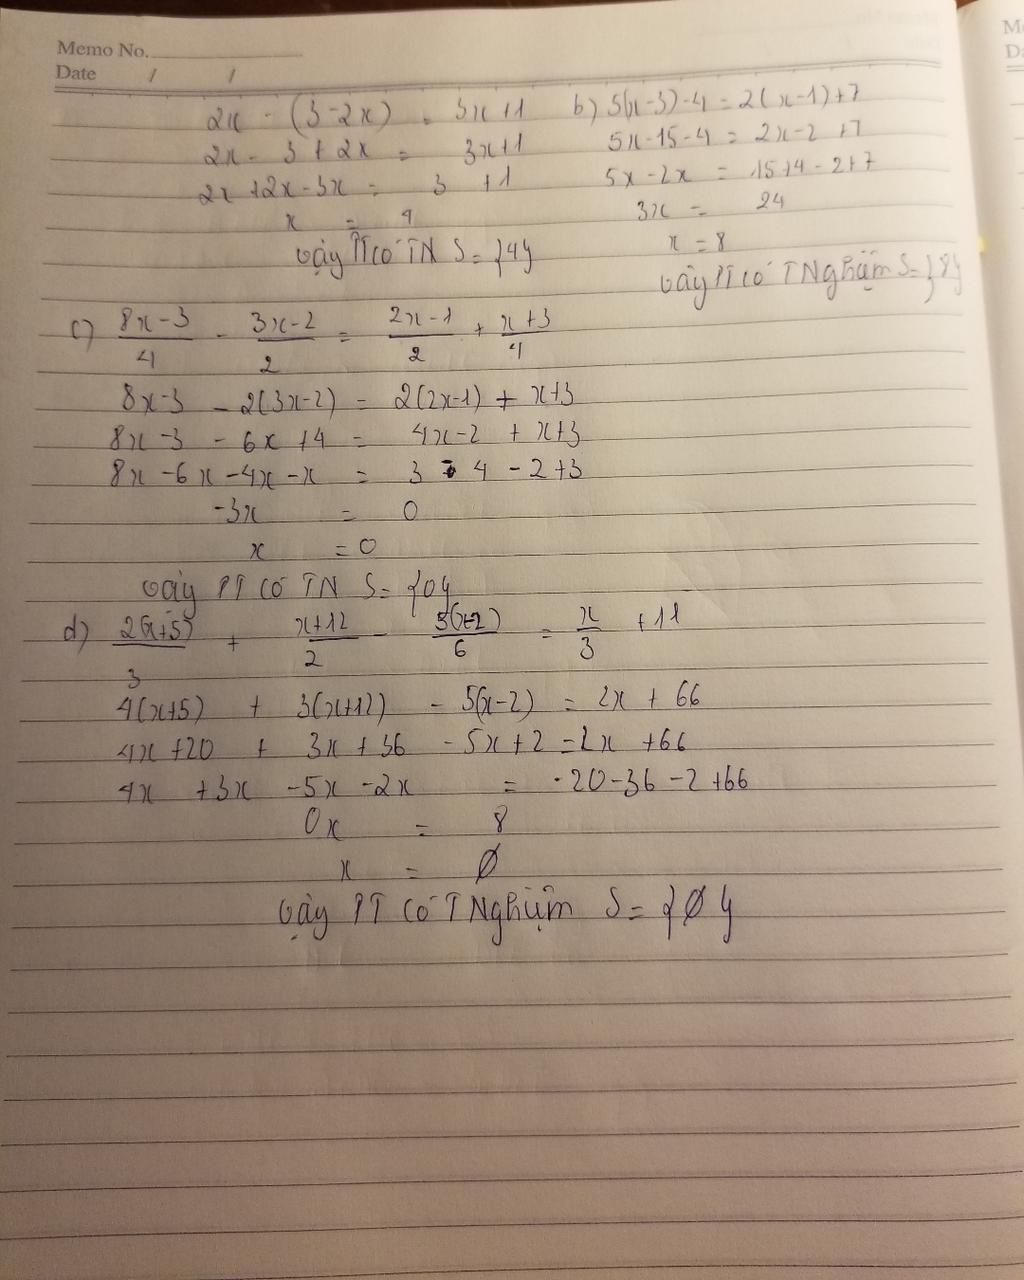 Memo No.
Date / /
2x - (3-2x) = 3x+1
2x - 3 + 2x = 3x+1
2x +2x-3x = 3 +1
x = 4
Vậy PT có TN S = {4}
b) 5(x-3)-4 = 2(x-1)+7
5x-15-4 = 2x-2 +7
5x-2x = 15+4-2+7
3x = 24
x = 8
Vậy PT có T Nghiệm S = {8}
c) \frac{8x-3}{4} - \frac{3x-2}{2} = \frac{2x-1}{2} + \frac{x+3}{4}
8x-3 - 2(3x-2) = 2(2x-1) + x+3
8x-3 - 6x +4 = 4x-2 + x+3
8x -6x -4x -x = 3 - 4 -2+3
-3x = 0
x = 0
Vậy PT có TN S= {0}
d) \frac{2(x+5)}{3} + \frac{x+12}{2} - \frac{5(x-2)}{6} = \frac{x}{3} +11
4(x+5) + 3(x+12) - 5(x-2) = 2x + 66
4x +20 + 3x + 36 - 5x + 2 = 2x +66
4x +3x -5x -2x = -20-36-2+66
0x = 8
x = Ø
Vậy PT có T Nghiệm S = {Ø}